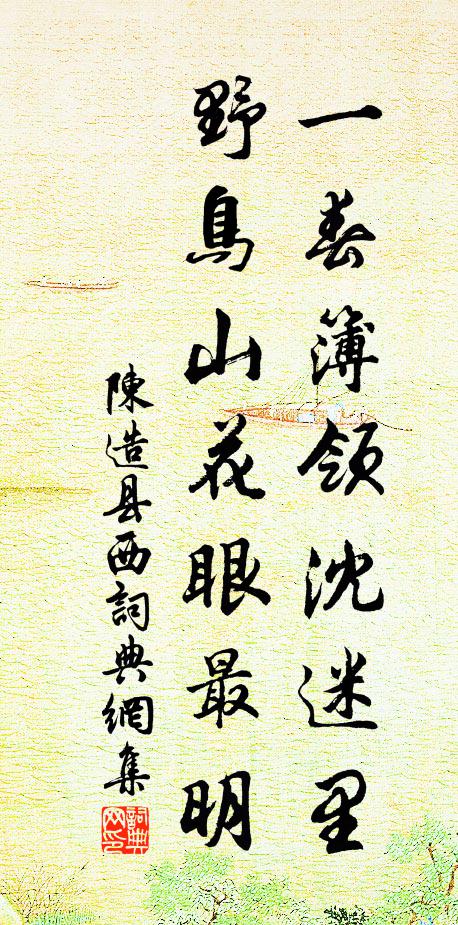 一春簿领沈迷里
野鳥山花眼最明
陳造县西詞典網集
詞典网印